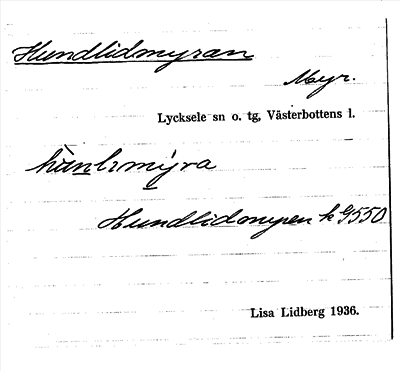 Hundlidmyran
Myr.
Lycksele sn o. tg, Västerbottens l.
Hundlidmyren k 9550
Lisa Lidberg 1936.